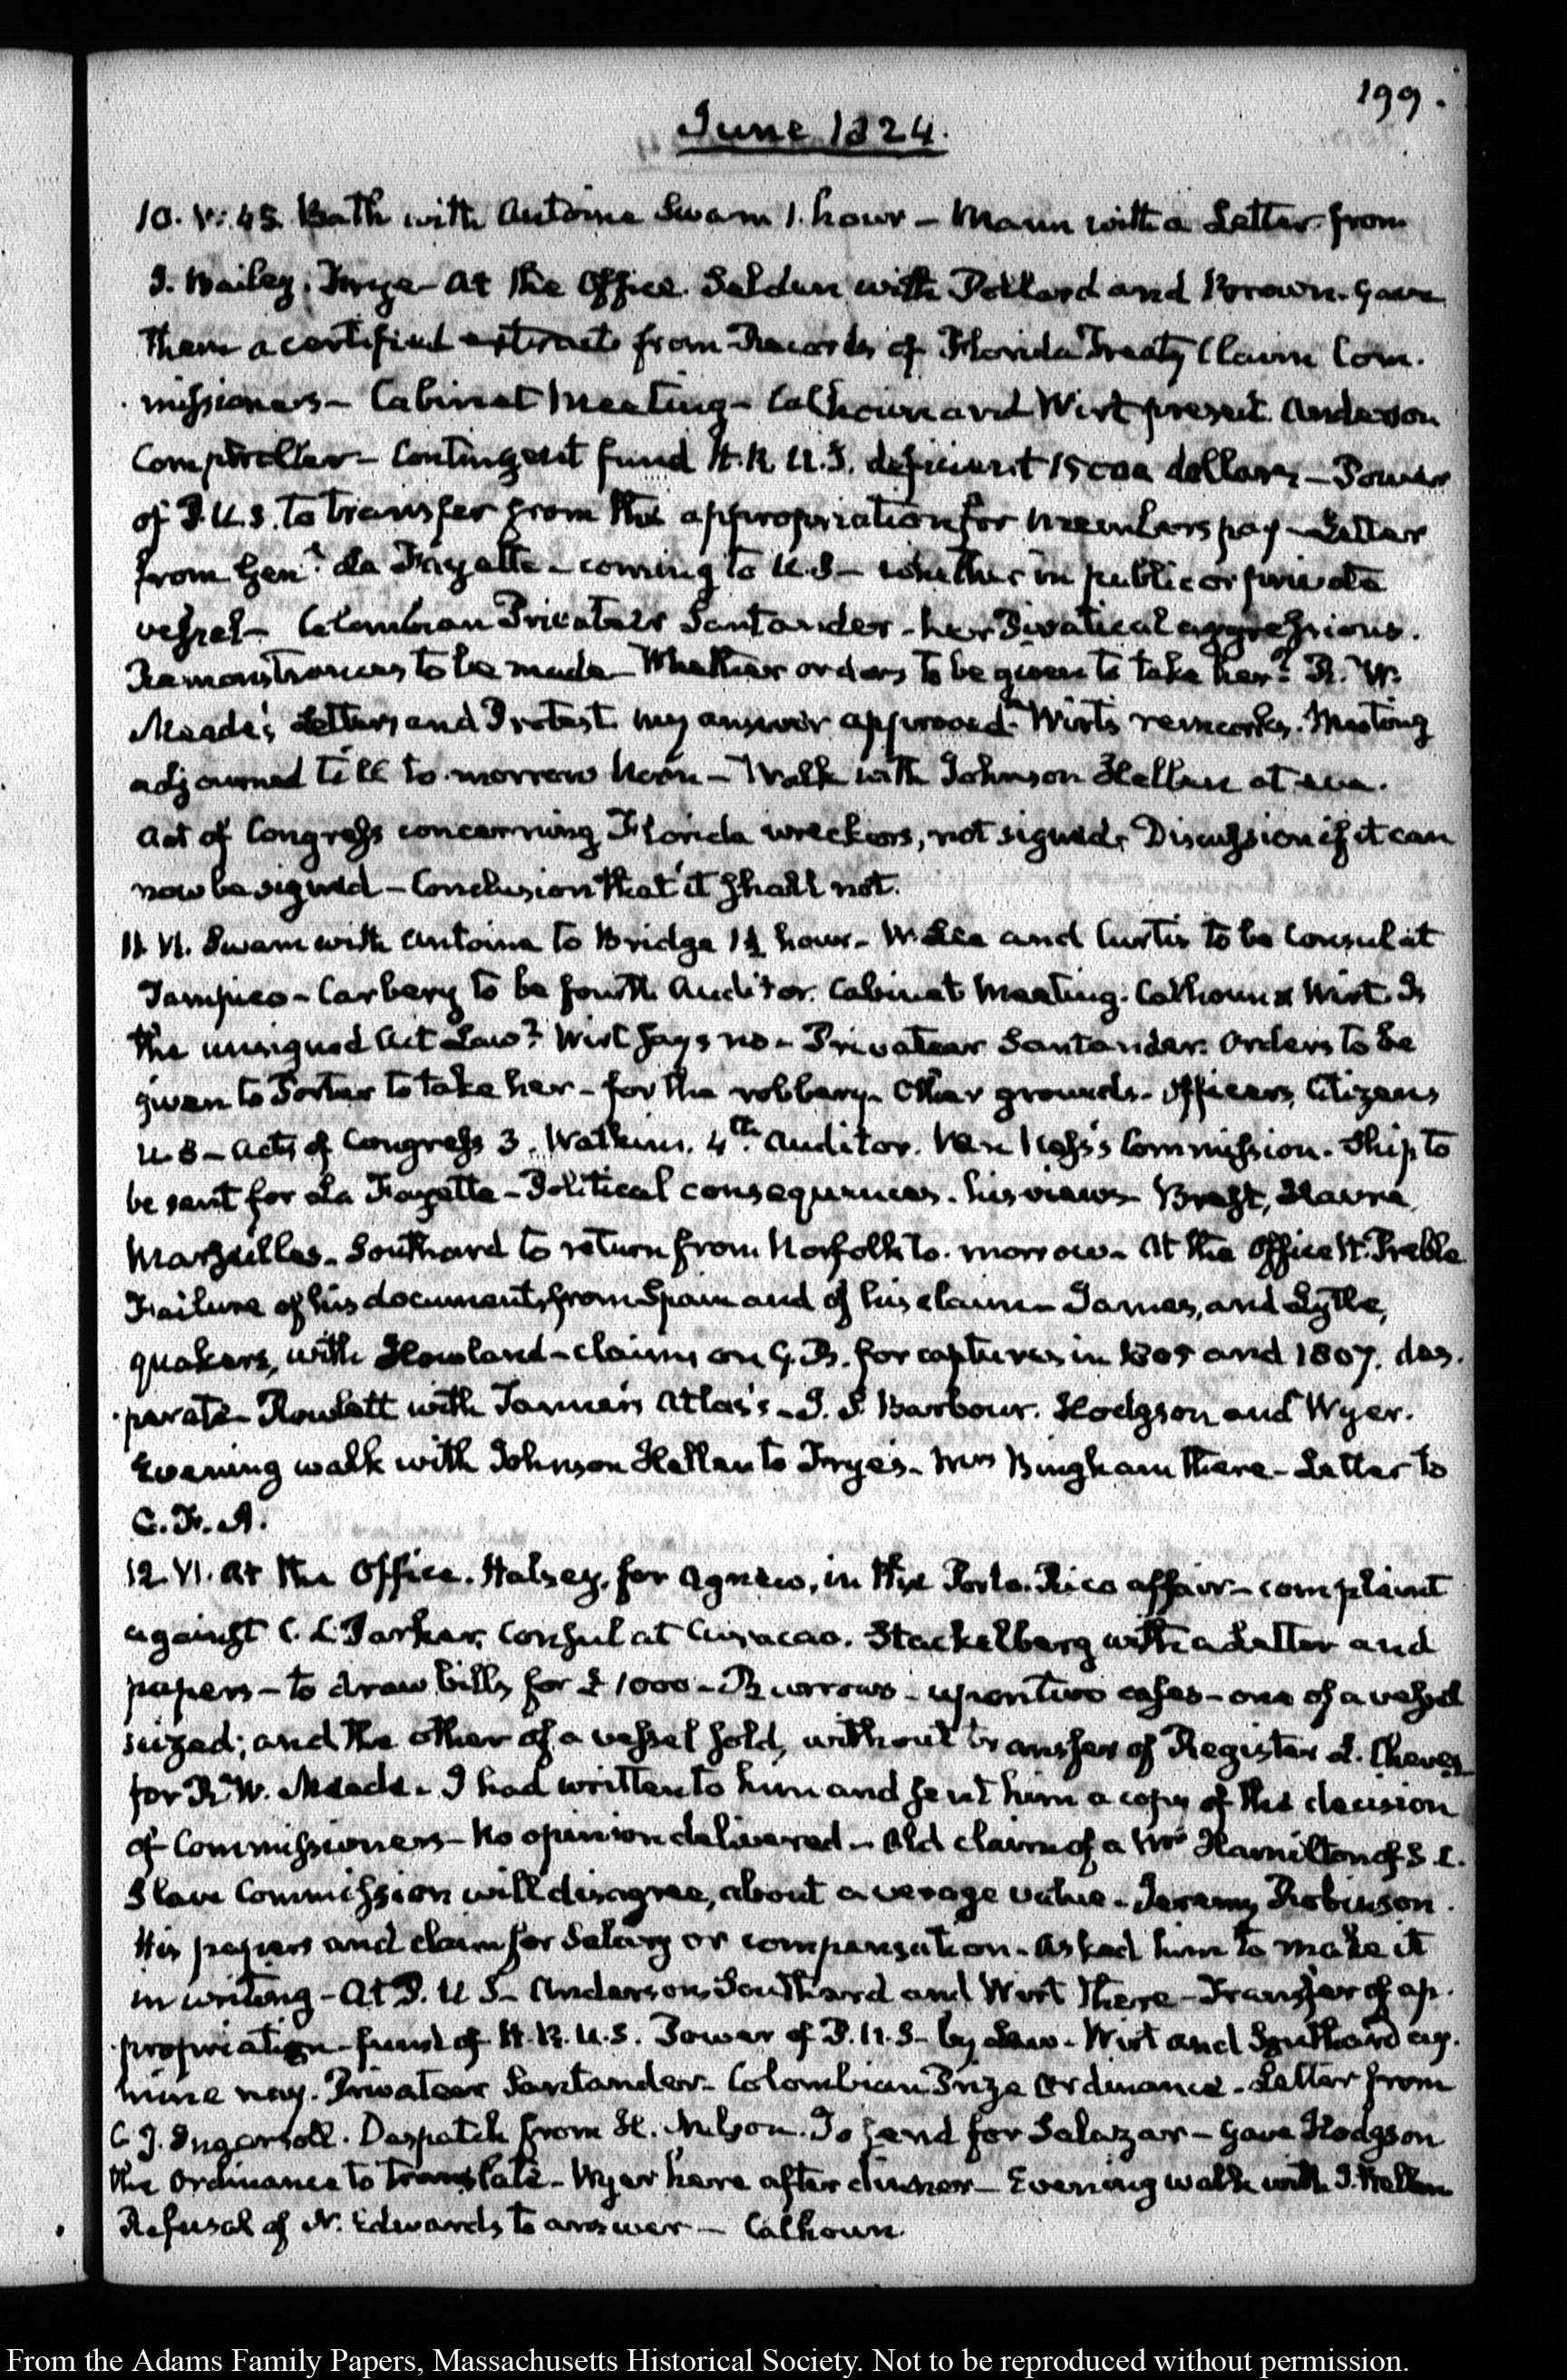 199.
June 1824.
10. V:45. Bath with Antoine Swam 1. hour — Mann with a Letter from
J. Bailey. Frye — At the Office. Selden with Pollard and Brown. Gave
them a certified extract from Records of Florida Treaty Claim Com-
missioners — Cabinet Meeting — Calhoun and Wirt present. Anderson
Comptroller — Contingent fund H. R. U.S. deficient 15000 dollars — Power
of P.U.S. to transfer from the appropriation for members pay — Letter
from Genl. La Fayette — coming to U.S — whether in public or private
vessel — Colombian Privateer Santander — her Piratical aggressions.
Remonstrances to be made — Whether orders to be given to take her? R. W.
Meade's Letters and Protest. my answer approved — Wirt's remarks. Meeting
adjourned till to-morrow Noon — Walk with Johnson Hellen at eve.
Act of Congress concerning Florida wreckers, not signed. Discussion if it can
now be signed — Conclusion that it shall not.
11. VI. Swam with Antoine to Bridge 1½ hour — W. Lee and Curtis to be Consul at
Tampico — Carbery to be fourth Auditor. Cabinet Meeting. Calhoun & Wirt. Is
the unsigned Act Law? Wirt says no — Privateer Santander. Orders to be
given to Porter to take her — for the robbery. Other grounds — Officers, Citizens
U.S — Acts of Congress 3. Watkins. 4th. Auditor. Van Ness's Commission. Ship to
be sent for La Fayette — Political consequences. his views — Brest, Havre,
Marseilles. Southard to return from Norfolk to-morrow — At the Office H. Preble
Failure of his documents from Spain and of his claim — James, and Lytle,
quakers, with Howland — claims on G.B. for captures in 1805 and 1807. des-
perate — Rowlett with Tanner's Atlas's — J. S. Barbour. Hodgson and Wyer.
Evening walk with Johnson Hellen to Frye's — Mrs Bingham there — Letter to
C. F. A.
12. VI. At the Office. Halsey, for Agnew, in the Porto-Rico affair — complaint
against C. L. Parker, Consul at Curacao. Stackelberg with a Letter and
papers — to draw bills for £1000 — Burrows — upon two cases — one of a vessel
seized; and the other of a vessel sold, without transfer of Register L. Cheves
for R. W. Meade. I had written to him and sent him a copy of the decision
of Commissioners — No opinion delivered — Old claim of a Mrs Hamilton of S.C.
Slave Commission will disagree, about average value. Jeremy Robinson.
His papers and claim for Salary or compensation. Asked him to make it
in writing — At P. U S — Anderson, Southard and Wirt there — Transfer of ap-
propriation — fund of H. R. U.S. Power of P.U.S — by Law — Wirt and Southard ay.
mine nay. Privateer Santander — Colombian Prize Ordinance. Letter from
C. J. Ingersoll. Despatch from H. Nelson. To send for Salazar — Gave Hodgson
the Ordinance to translate — Wyer here after dinner — Evening walk with J. Hellen
Refusal of N. Edwards to answer — Calhoun.
From the Adams Family Papers, Massachusetts Historical Society. Not to be reproduced without permission.